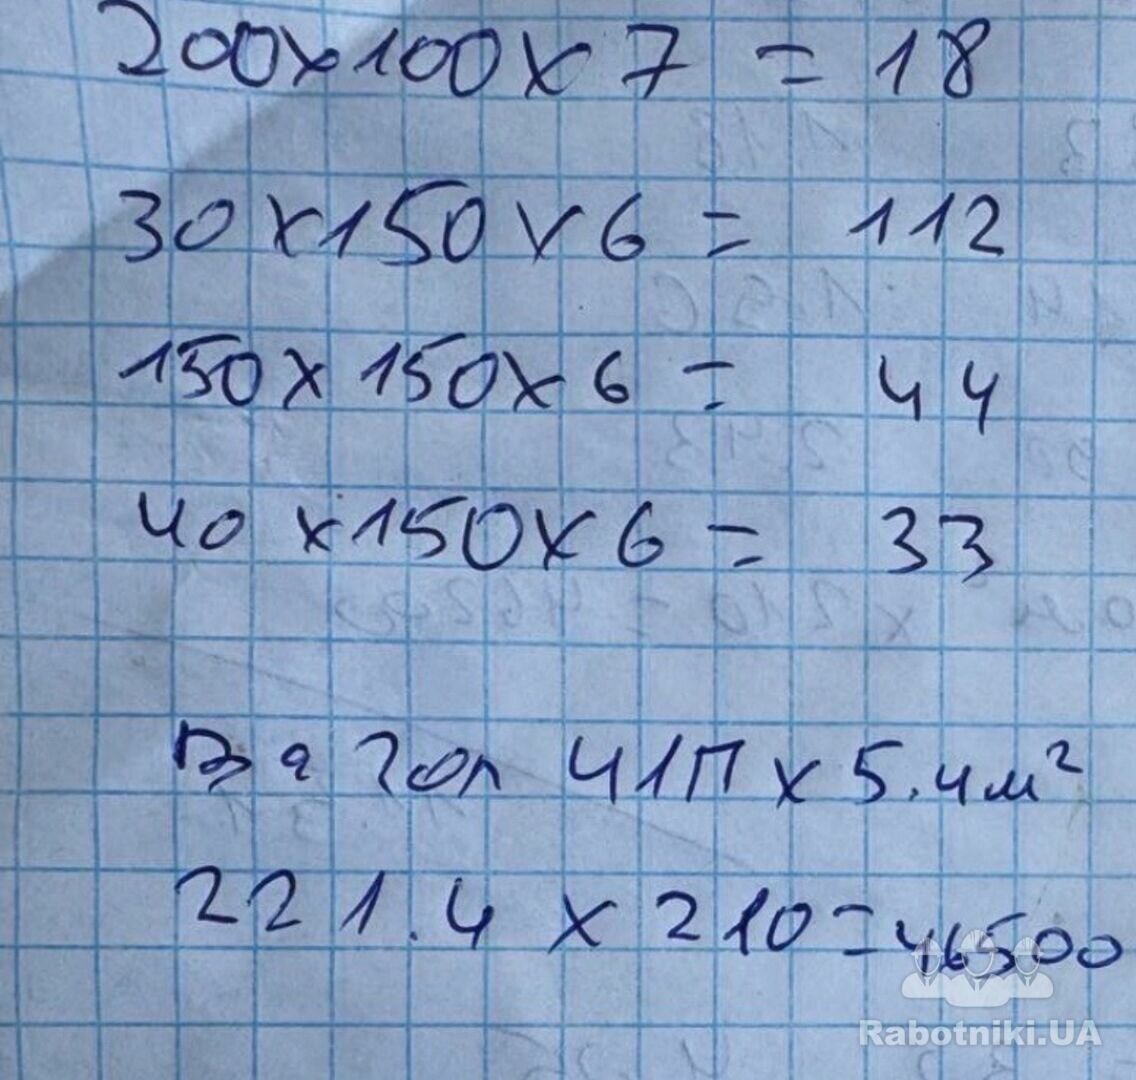 200x100x7 = 18
30x150x6 = 112
150x150x6 = 44
40x150x6 = 33
41П x 5.4м²
221.4 x 210 = 46500
Rabotniki.UA